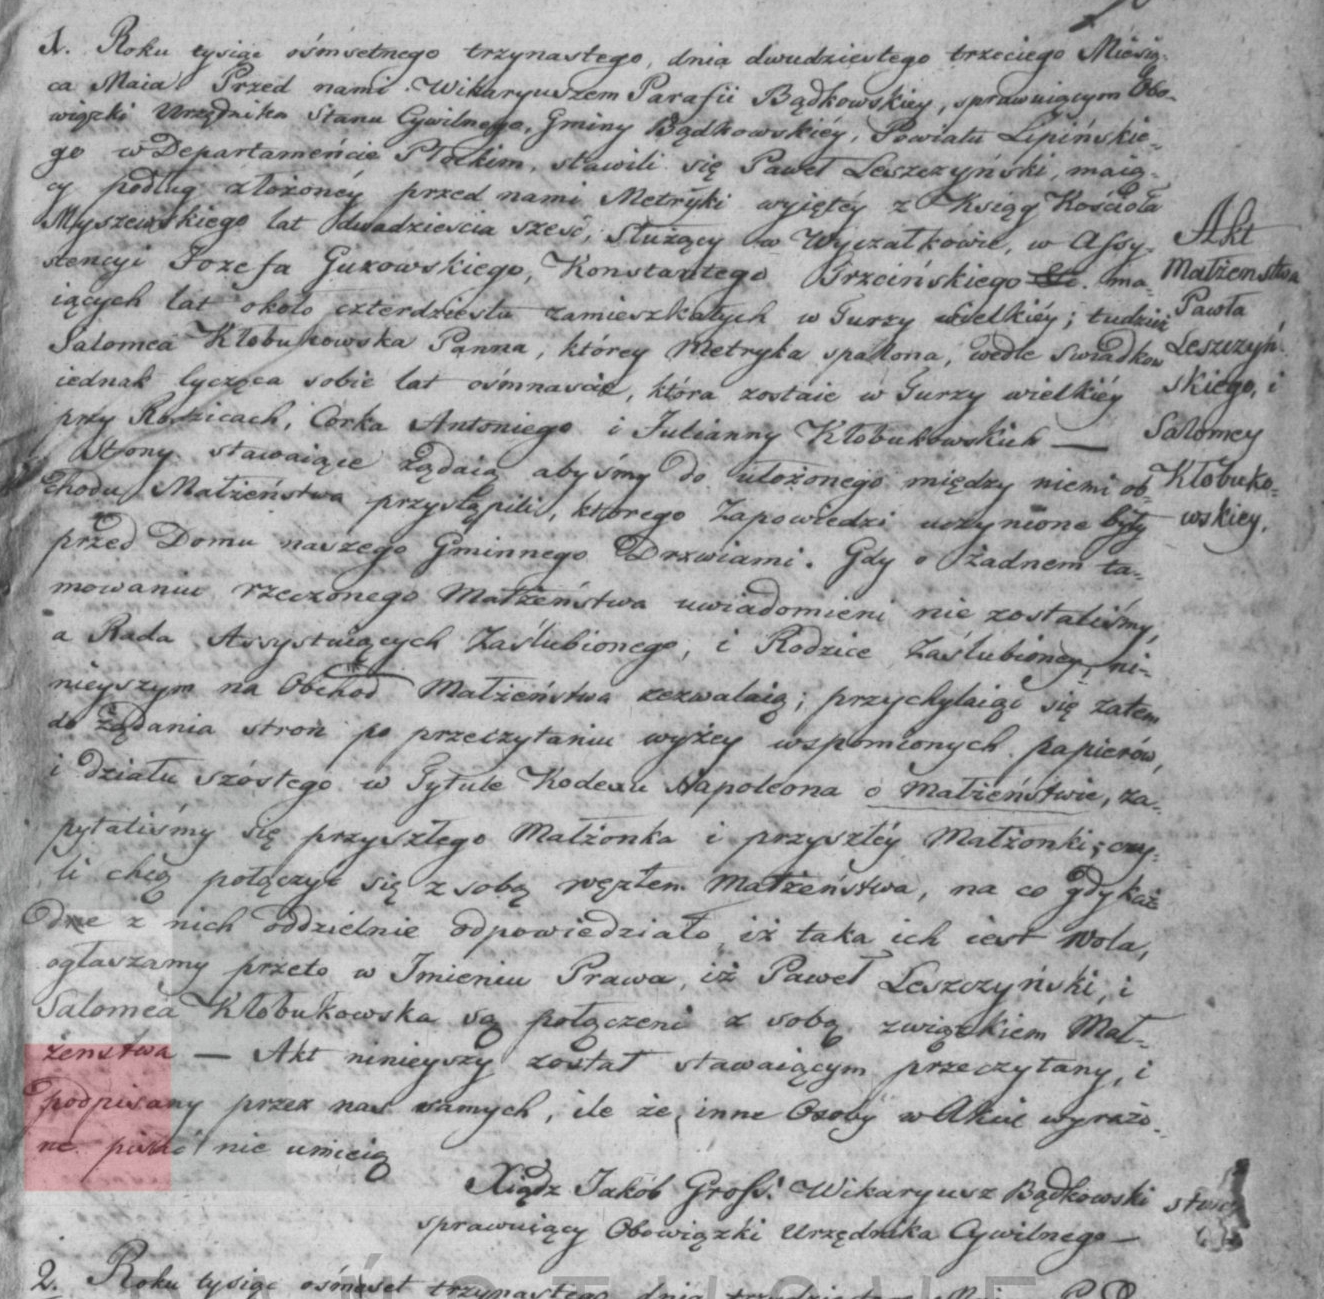 1. Roku tysiąc ośmsetnego trzynastego, dnia dwudziestego trzeciego Miesią-
ca Maia Przed nami Wikaryuszem Parafii Bądkowskiey, sprawuiącym Obo-
wiązki Urzędnika Stanu Cywilnego, Gminy Bądkowskiéy, Powiatu Lipińskie-
go w Departamencie Płockim, stawili się Paweł Leszczyński, maią-
cy podług złożonéy przed nami Metryki wyiętéy z Xsiąg Kościoła
Myszewskiego lat dwadzieścia sześć, służący w Wyczałkowie, w Assy-
stencyi Jozefa Guzowskiego, Konstantego Trzcińskiego ma-
iących lat około czterdziestu zamieszkałych w Gurzy wielkiéy; tudzież
Salomea Kłobukowska Panna, którey Metryka spalona, wedle Swiadkow
iednak lycząca sobie lat ośmnaście, która zostaie w Gurzy wielkiéy
przy Rodzicach, Corka Antoniego i Julianny Kłobukowskich —
Strony stawaiące żądaią abyśmy do ułożonego między niemi ob-
chodu Małżeństwa przystąpili, którego Zapowiedzi uczynione były
przed Domu naszego Gminnego Drzwiami. Gdy o żadnem ta-
mowaniu rzeczonego Małżeństwa uwiadomieni nie zostaliśmy,
a Rada Assystuiących Zaślubionego, i Rodzice Zaślubioney, ni-
nieyszym na Obchod Małżeństwa zezwalaią; przychylaiąc się zatem
do żądania stron po przeczytaniu wyżey wspomionych papierów,
i działu szóstego w Tytule Kodexu Napoleona o Małżeństwie, za-
pytaliśmy się przyszłego Małżonka i przyszłéy Małżonki; czy-
li chcą połączyć się z sobą węzłem Małżeństwa, na co gdy każ
dne z nich oddzielnie odpowiedziało, iż taka ich iest Wola,
ogłaszamy przeto w Imieniu Prawa, iż Paweł Leszczyński, i
Salomea Kłobukowska są połączeni z sobą związkiem Mał-
żeństwa — Akt ninieyszy został stawaiącym przeczytany, i
podpisany przez nas samych, ile że, inne Osoby w Akcie wyrażo-
ne pisać nie umieią
Xiądz Jakób Gross. Wikaryusz Bądkowski
sprawuiący Obowiązki Urzędnika Cywilnego —
Akt
Małżenstwa
Pawła
Leszczyń-
skiego, i
Salomey
Kłobuko-
wskiey.
2. Roku tysiąc ośmset trzynastego dnia